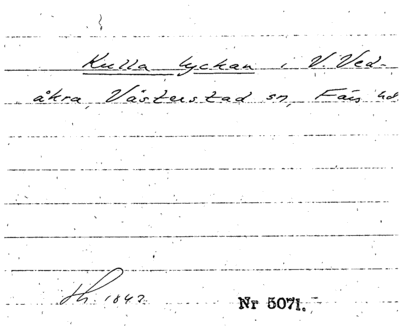 Kulla lyckan i V. Ved-
åkra, Västerstad sn, Färs hd
Sk. 1842.
Nr 5071.